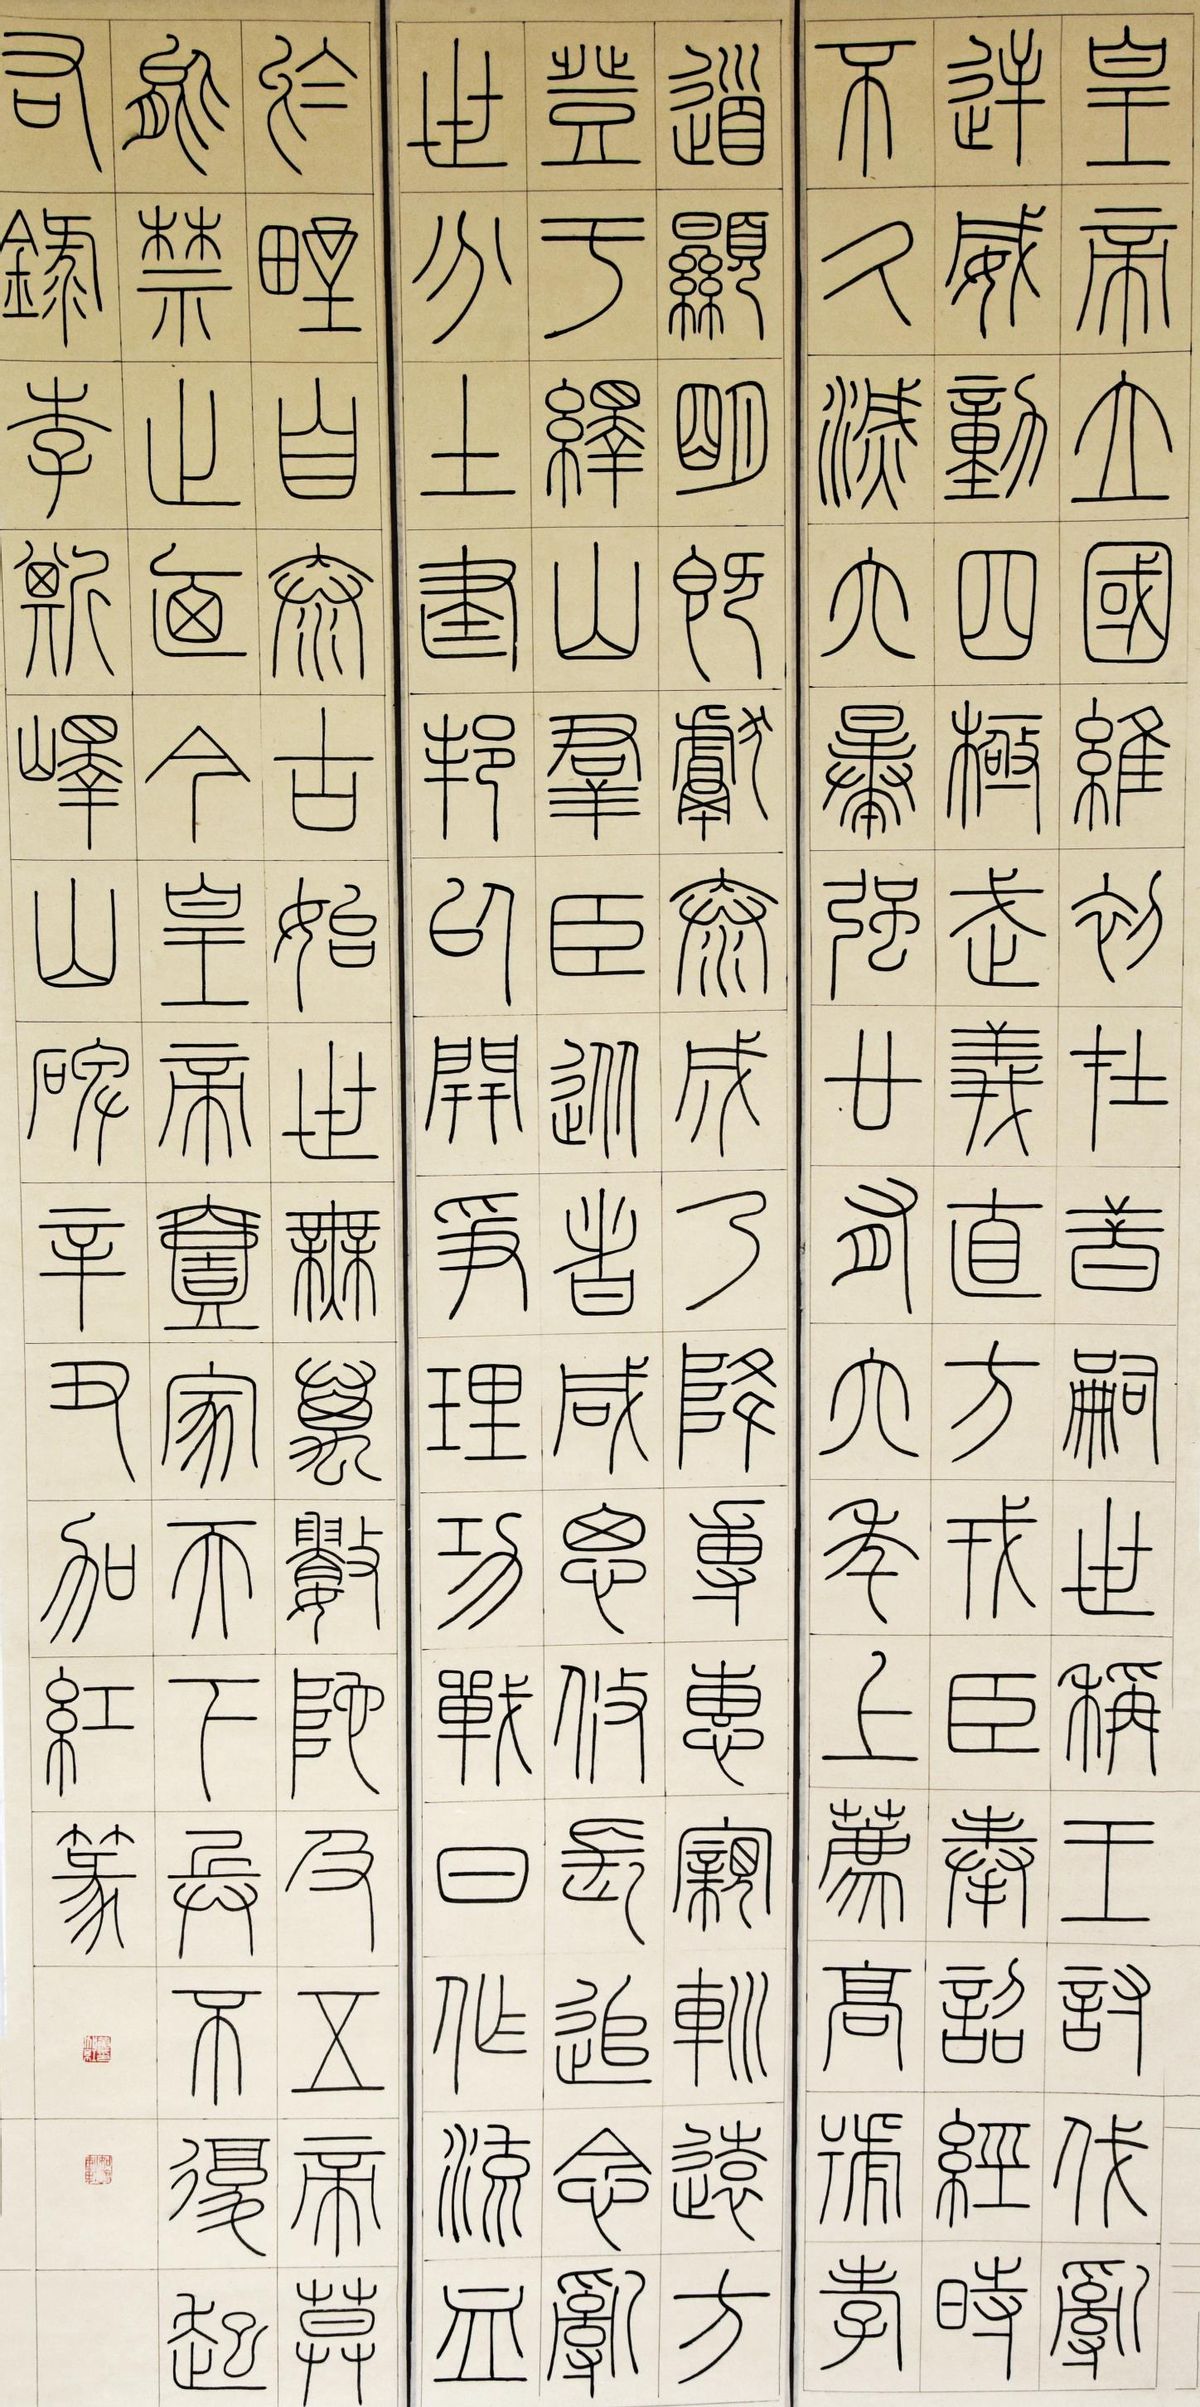 皇帝立國維初在昔嗣世稱王討伐亂
逆威動四極武義直方戎臣奉詔經時
不久滅六暴強廿有六年上薦高號孝
道顯明既獻泰成乃降專惠寴䡅遠方
登于繹山羣臣從者咸思攸長追念亂
世分土建邦以開爭理功戰日作流血
於野自泰古始世無萬數陀及五帝莫
能禁止迺今皇帝壹家天下兵不復起
右錄李斯嶧山碑辛丑加紅篆